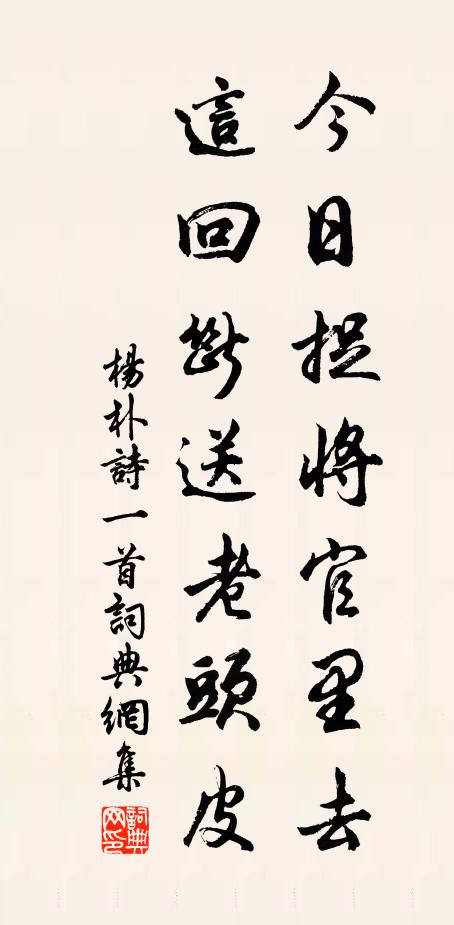 今日捉將官里去
這回斷送老頭皮
楊朴詩一首詞典網集
詞典網印